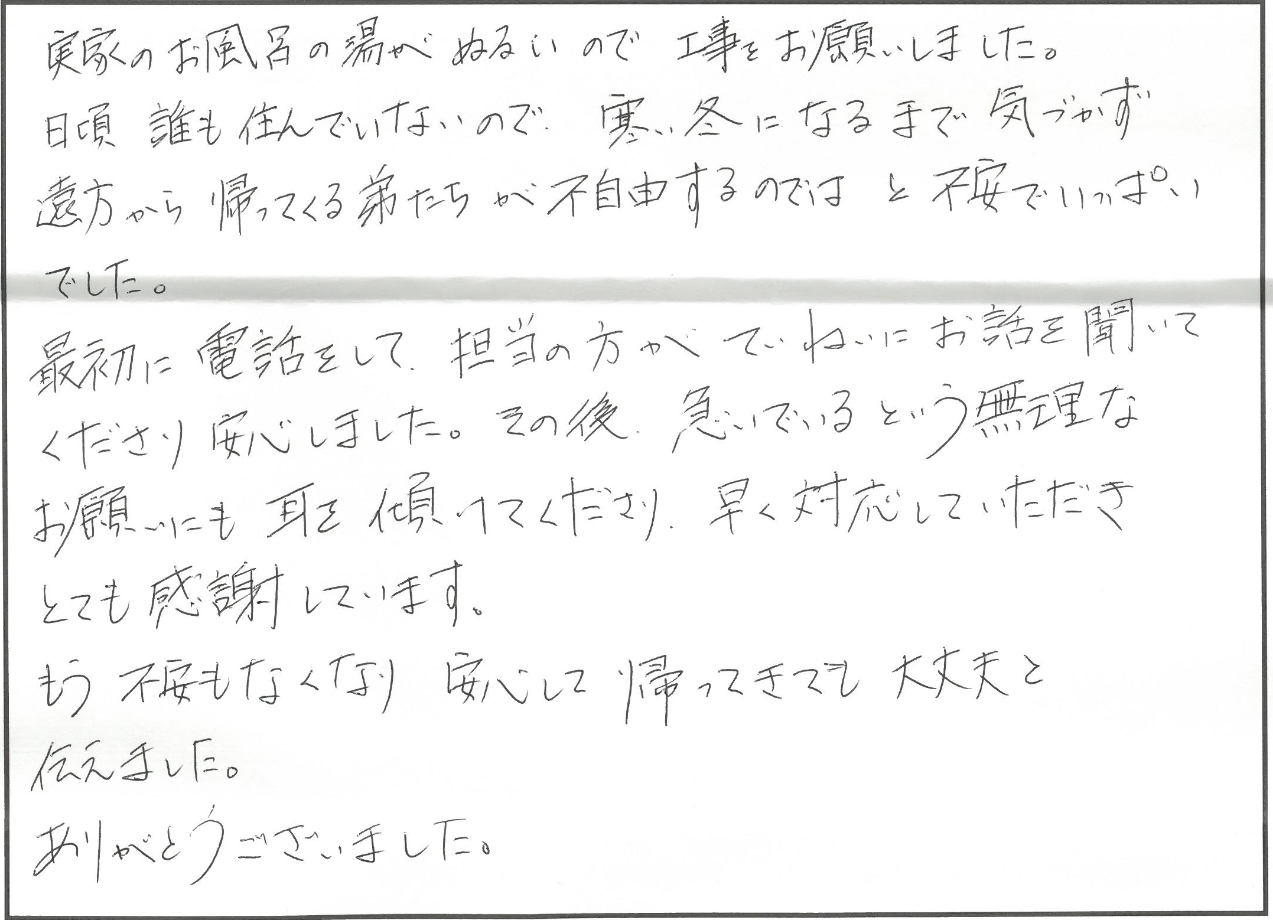 実家のお風呂の湯がぬるいので工事をお願いしました。
日頃誰も住んでいないので、寒い冬になるまで気づかず
遠方から帰ってくる弟たちが不自由するのではと不安でいっぱい
でした。
最初に電話をして、担当の方がていねいにお話を聞いて
くださり安心しました。その後、急いでいるという無理な
お願いにも耳を傾けてくださり、早く対応していただき
とても感謝しています。
もう不安もなくなり安心して帰ってきても大丈夫と
伝えました。
ありがとうございました。